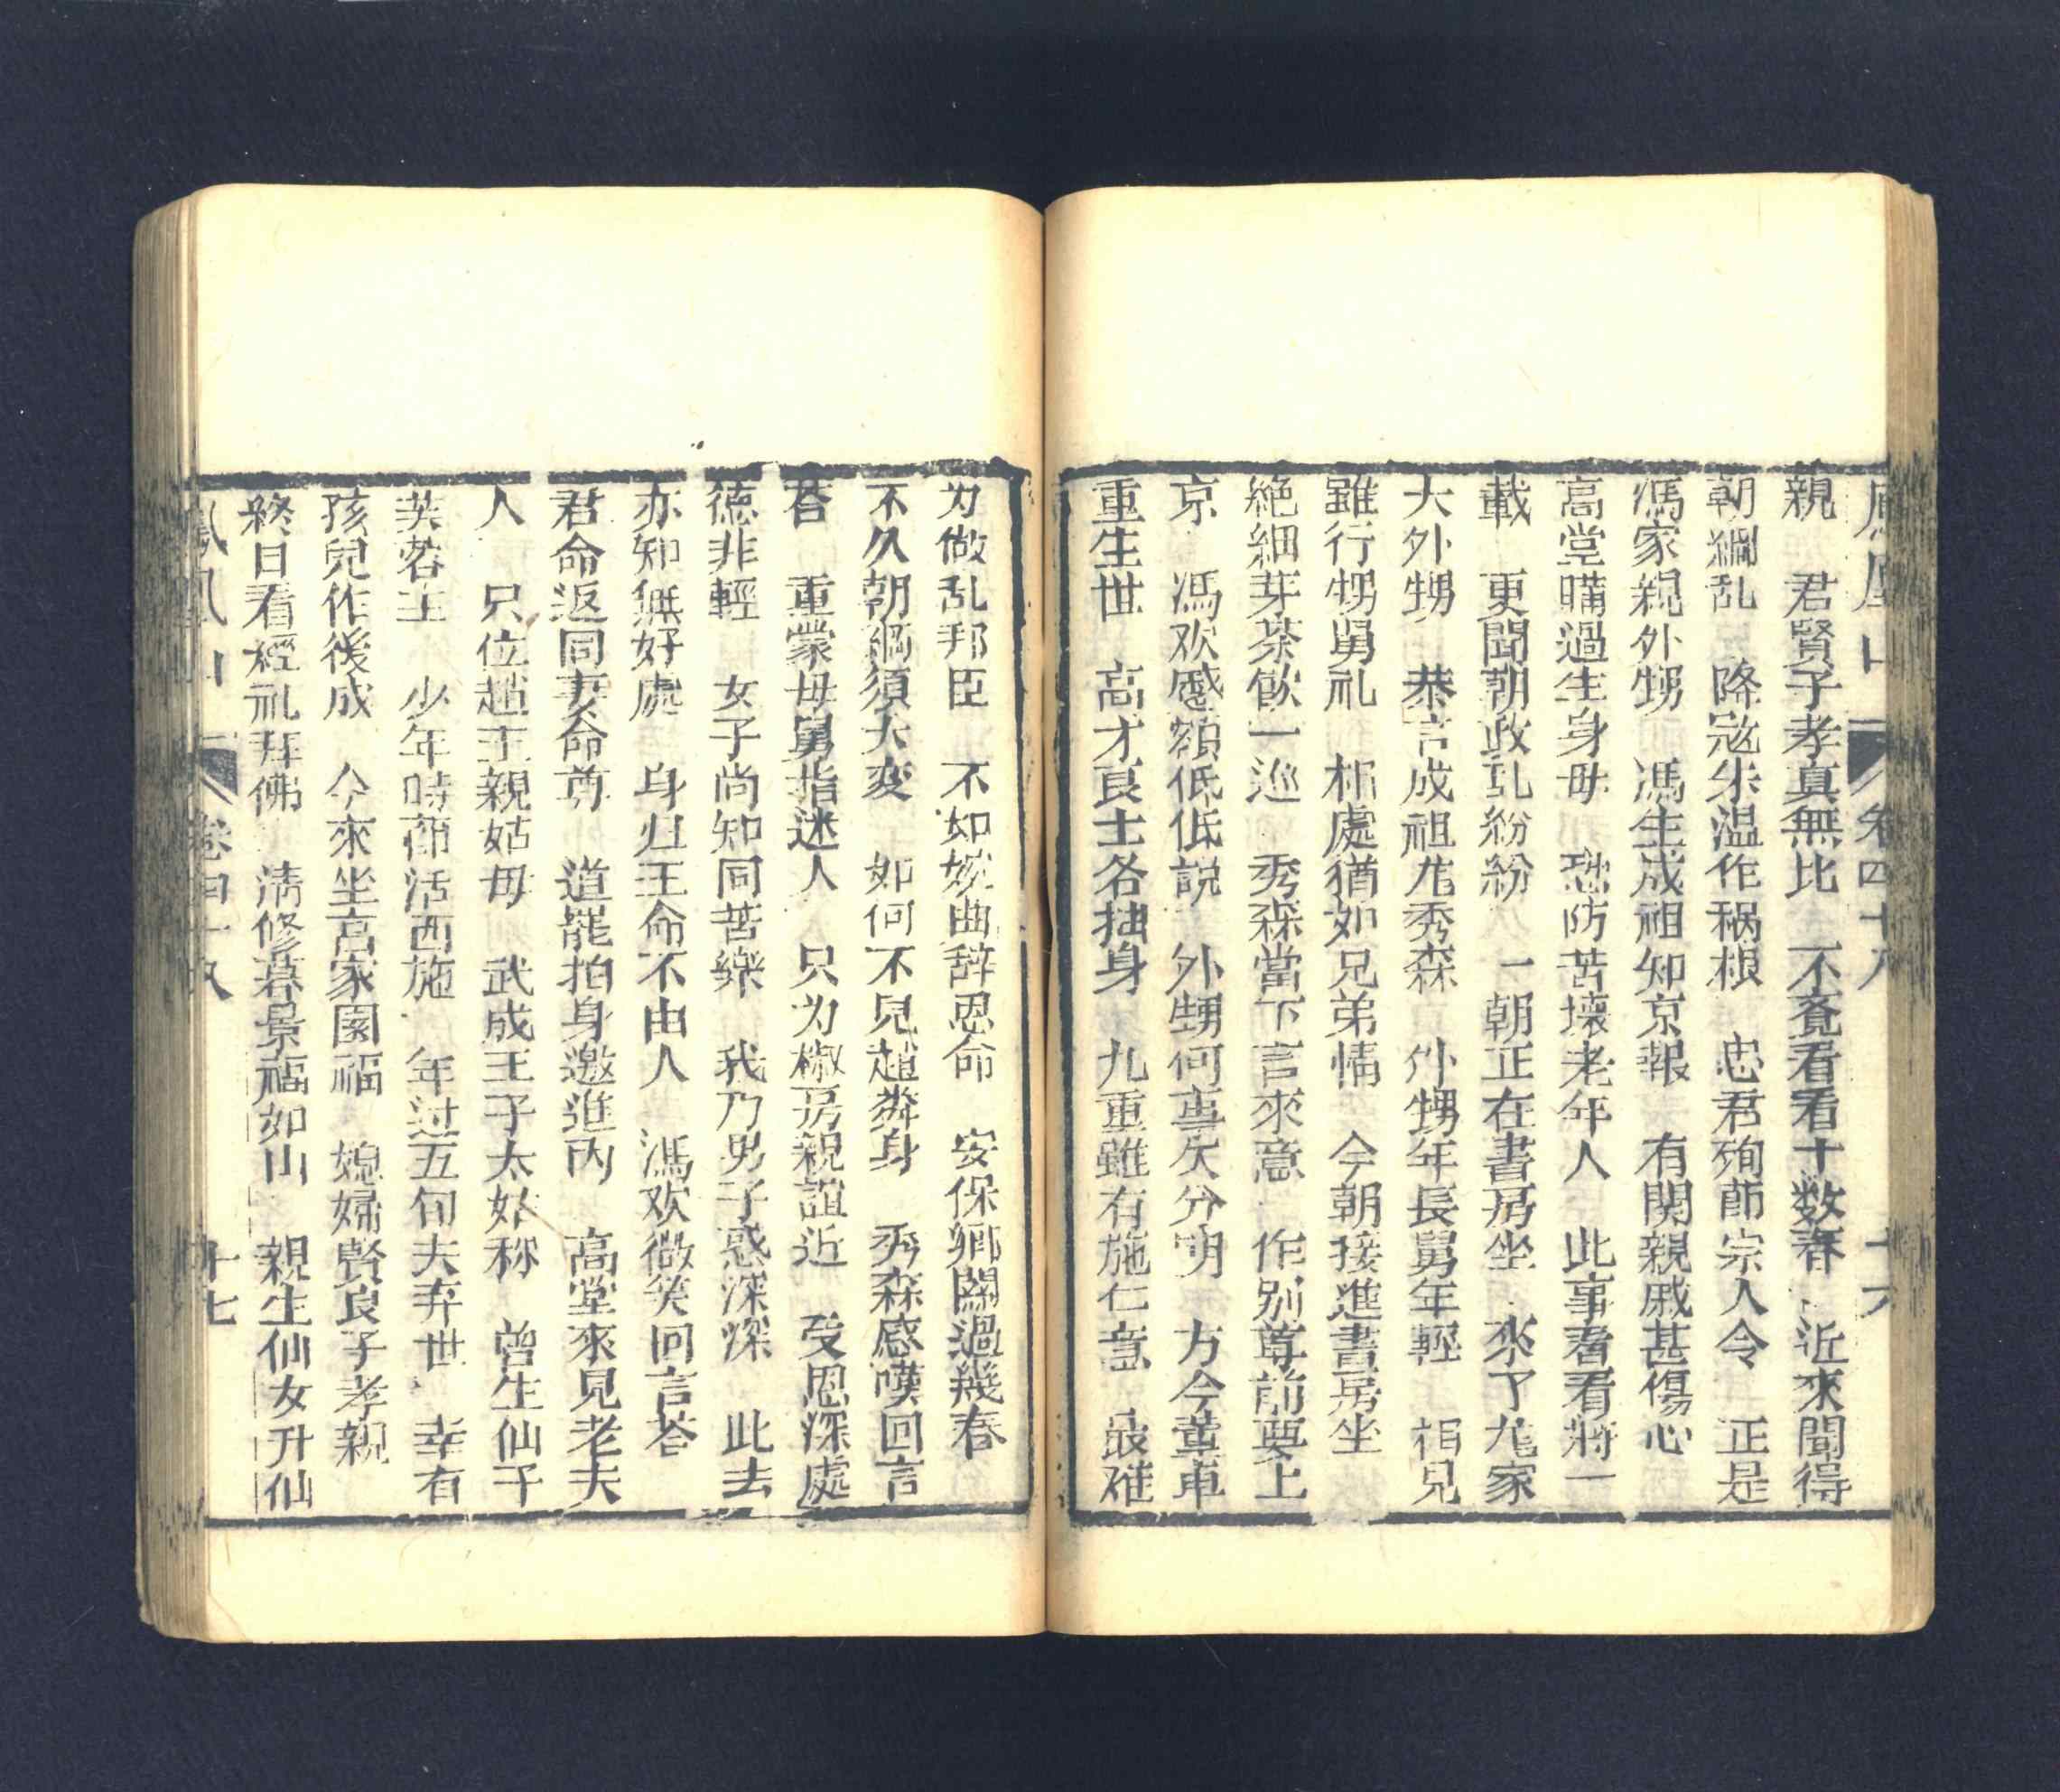 鳳凰山 卷四十八 十六
親 君賢子孝真無比 不覔看看十数春 近來聞得
朝綱乱 降冦朱温作祸根 忠君殉節宗人令 正是
馮家親外甥 馮生成祖知京報 有関親戚甚傷心
高堂瞒過生身母 恐防苦壊老年人 此事看看將一
載 更聞朝政乱紛紛 一朝正在書房坐 來了尨家
大外甥 恭言成祖尨秀森 外甥年長舅年輕 相見
雖行甥舅礼 相處猶如兄弟情 今朝接進書房坐
絶細芽茶飲一巡 秀森當下言來意 作别尊前要上
京 馮欢感額低低説 外甥何事欠分明 方今董卓
重生世 高才良士各抽身 九重雖有施仁意 最难
为做乱邦臣 不如婉曲辞恩命 安保郷関過幾春
不久朝綱須大変 如何不見趙彝身 秀森感嘆回言
荅 重蒙母舅指迷人 只为椒房親誼近 受恩深處
德非輕 女子尚知同苦樂 我乃男子惑深深 此去
亦知無好處 身归王命不由人 馮欢微笑回言荅
君命返同妻命尊 道罷拍身邀進内 高堂來見老夫
人 只位趙王親姑母 武成王子太姑称 曾生仙子
芙蓉主 少年時節活西施 年过五旬夫弃世 幸有
孩兒作後成 今來坐享家園福 媳婦賢良子孝親
終日看經礼拜佛 清修暮景福如山 親生仙女升仙
鳳凰山 卷四十八 十七